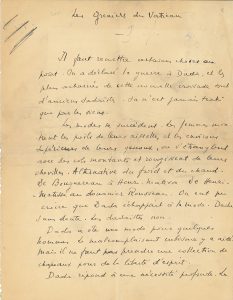 Les Greniers du Vatican
I
Il faut remettre certaines choses au
point. On a déclaré la guerre à Dada, et les
plus acharnés de cette nouvelle croisade sont
d'anciens dadaïstes. On n'est jamais trahi
que par les siens.
Les modes se succèdent. Les femmes mon-
trent les poils de leurs aisselles et les environs
de leurs, ou s'étranglent
avec des cols montants et rougissent de leurs
chevilles. Alternative du froid et du chaud.
De Bouguereau à Henri Martin. De Henri
Matisse au douanier Rousseau. On eut pu
croire que Dada échappait à la mode. Dada
sans doute. Les dadaïstes non.
Dada a été une mode pour quelques
hommes. Le contemplateur
mais il ne faut pas prendre une collection de
chapeaux pour de la liberté d'esprit.
Dada répond à une nécessité profonde. Le